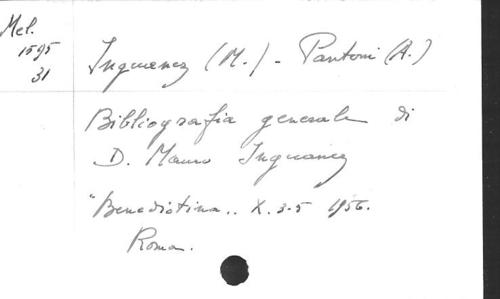 Mel.
1595
31
Inguanez (M.) - Pantoni (A.)
Bibliografia generale di
D. Mauro Inguanez
"Benedictina" X. 3-5 1956.
Roma.